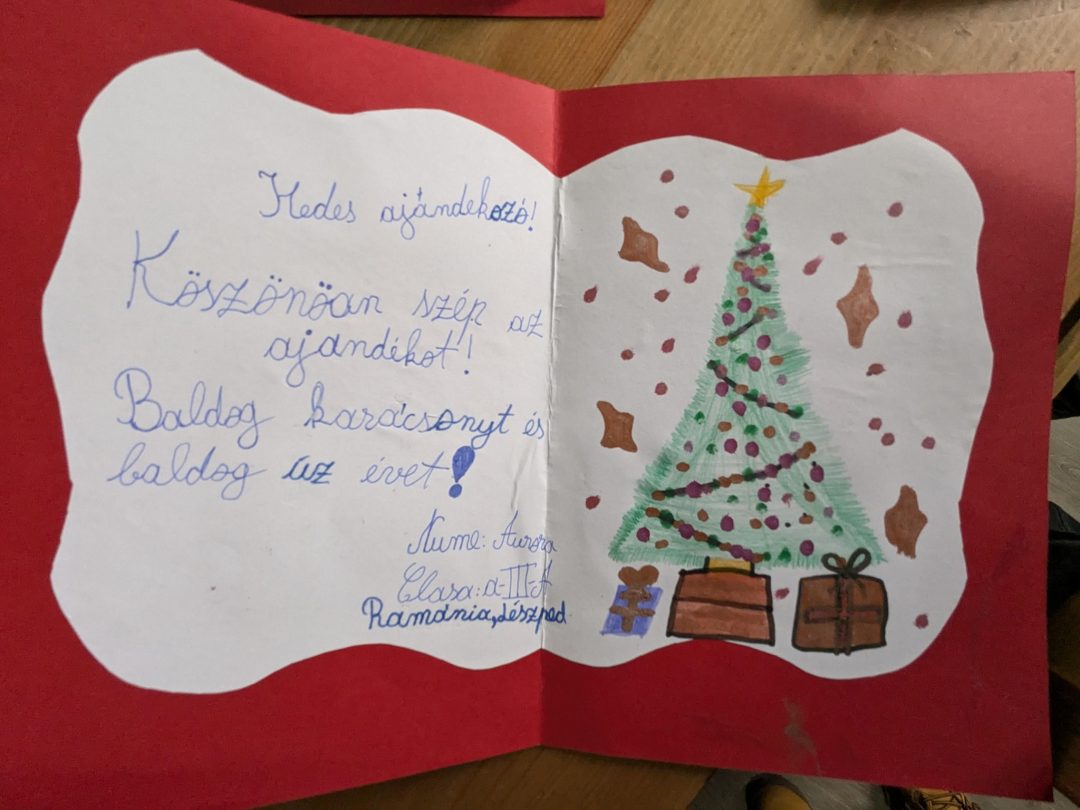 Kedes ajándekozó!
Köszönöan szép az
ajandékot!
Baldog karácsonyt és
baldog úz évet!
Nume: Aurora
Clasa: a-III-A
Ramánia, dészped